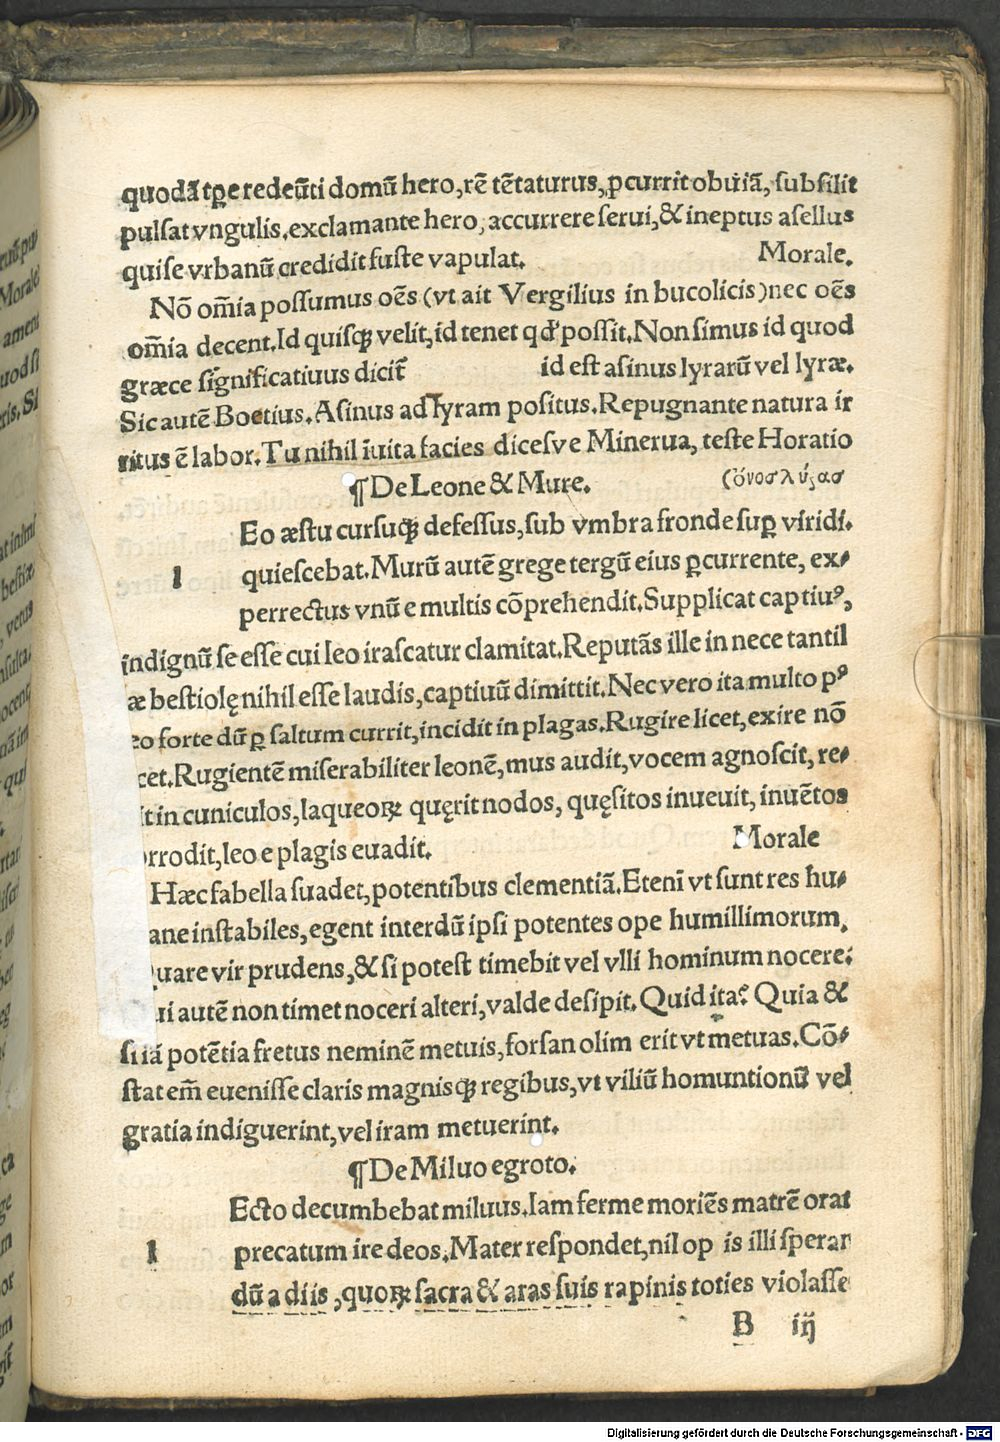 quodā tꝑe redeūti domū hero, rē tētaturus, ꝓcurrit obuiā, subsilit
pulsat vngulis. exclamante hero, accurrere serui, & ineptus asellus
qui se vrbanū credidit fuste vapulat. Morale.
Nō om̄ia possumus oēs (vt ait Vergilius in bucolicis) nec oēs
om̄ia decent. Id quisq; velit, id tenet qd' possit. Non simus id quod
græce significatiuus dicit̄ id est asinus lyrarū vel lyræ.
Sic autē Boetius. Asinus ad lyram positus. Repugnante natura ir
ritus ē labor. Tu nihil īuita facies dicesve Minerua, teste Horatio
¶ De Leone & Mure. (ὄνοσ λύρασ
Eo æstu cursuq; defessus, sub vmbra fronde suꝑ viridi.
l quiescebat. Murū autē grege tergū eius ꝑcurrente, ex⸗
perrectus vnū e multis cōprehendit. Supplicat captiuꝰ,
indignū se esse cui leo irascatur clamitat. Reputās ille in nece tantil
æ bestiolę nihil esse laudis, captiuū dimittit. Nec vero ita multo pꝰ
eo forte dū ꝑ saltum currit, incidit in plagas. Rugire licet, exire nō
cet. Rugientē miserabiliter leonē, mus audit, vocem agnoscit, re⸗
it in cuniculos, laqueoꝝ quęrit nodos, quęsitos inueuit, inuētos
orrodit, leo e plagis euadit. Morale
Hæc fabella suadet, potentibus clementiā. Etenī vt sunt res hu⸗
ane instabiles, egent interdū ipsi potentes ope humillimorum,
uare vir prudens, & si potest timebit vel vlli hominum nocere:
ui autē non timet noceri alteri, valde desipit. Quid ita? Quia &
si iā potētia fretus neminē metuis, forsan olim erit vt metuas. Cō⸗
stat em̄ euenisse claris magnisq; regibus, vt viliū homuntionū vel
gratia indiguerint, vel iram metuerint.
¶ De Miluo egroto.
Ecto decumbebat miluus. Iam ferme moriēs matrē orat
l precatum ire deos. Mater respondet, nil op is illi speran
dū a diis, quoꝝ sacra & aras suis rapinis toties violasse
B iij
Digitalisierung gefördert durch die Deutsche Forschungsgemeinschaft - DFG